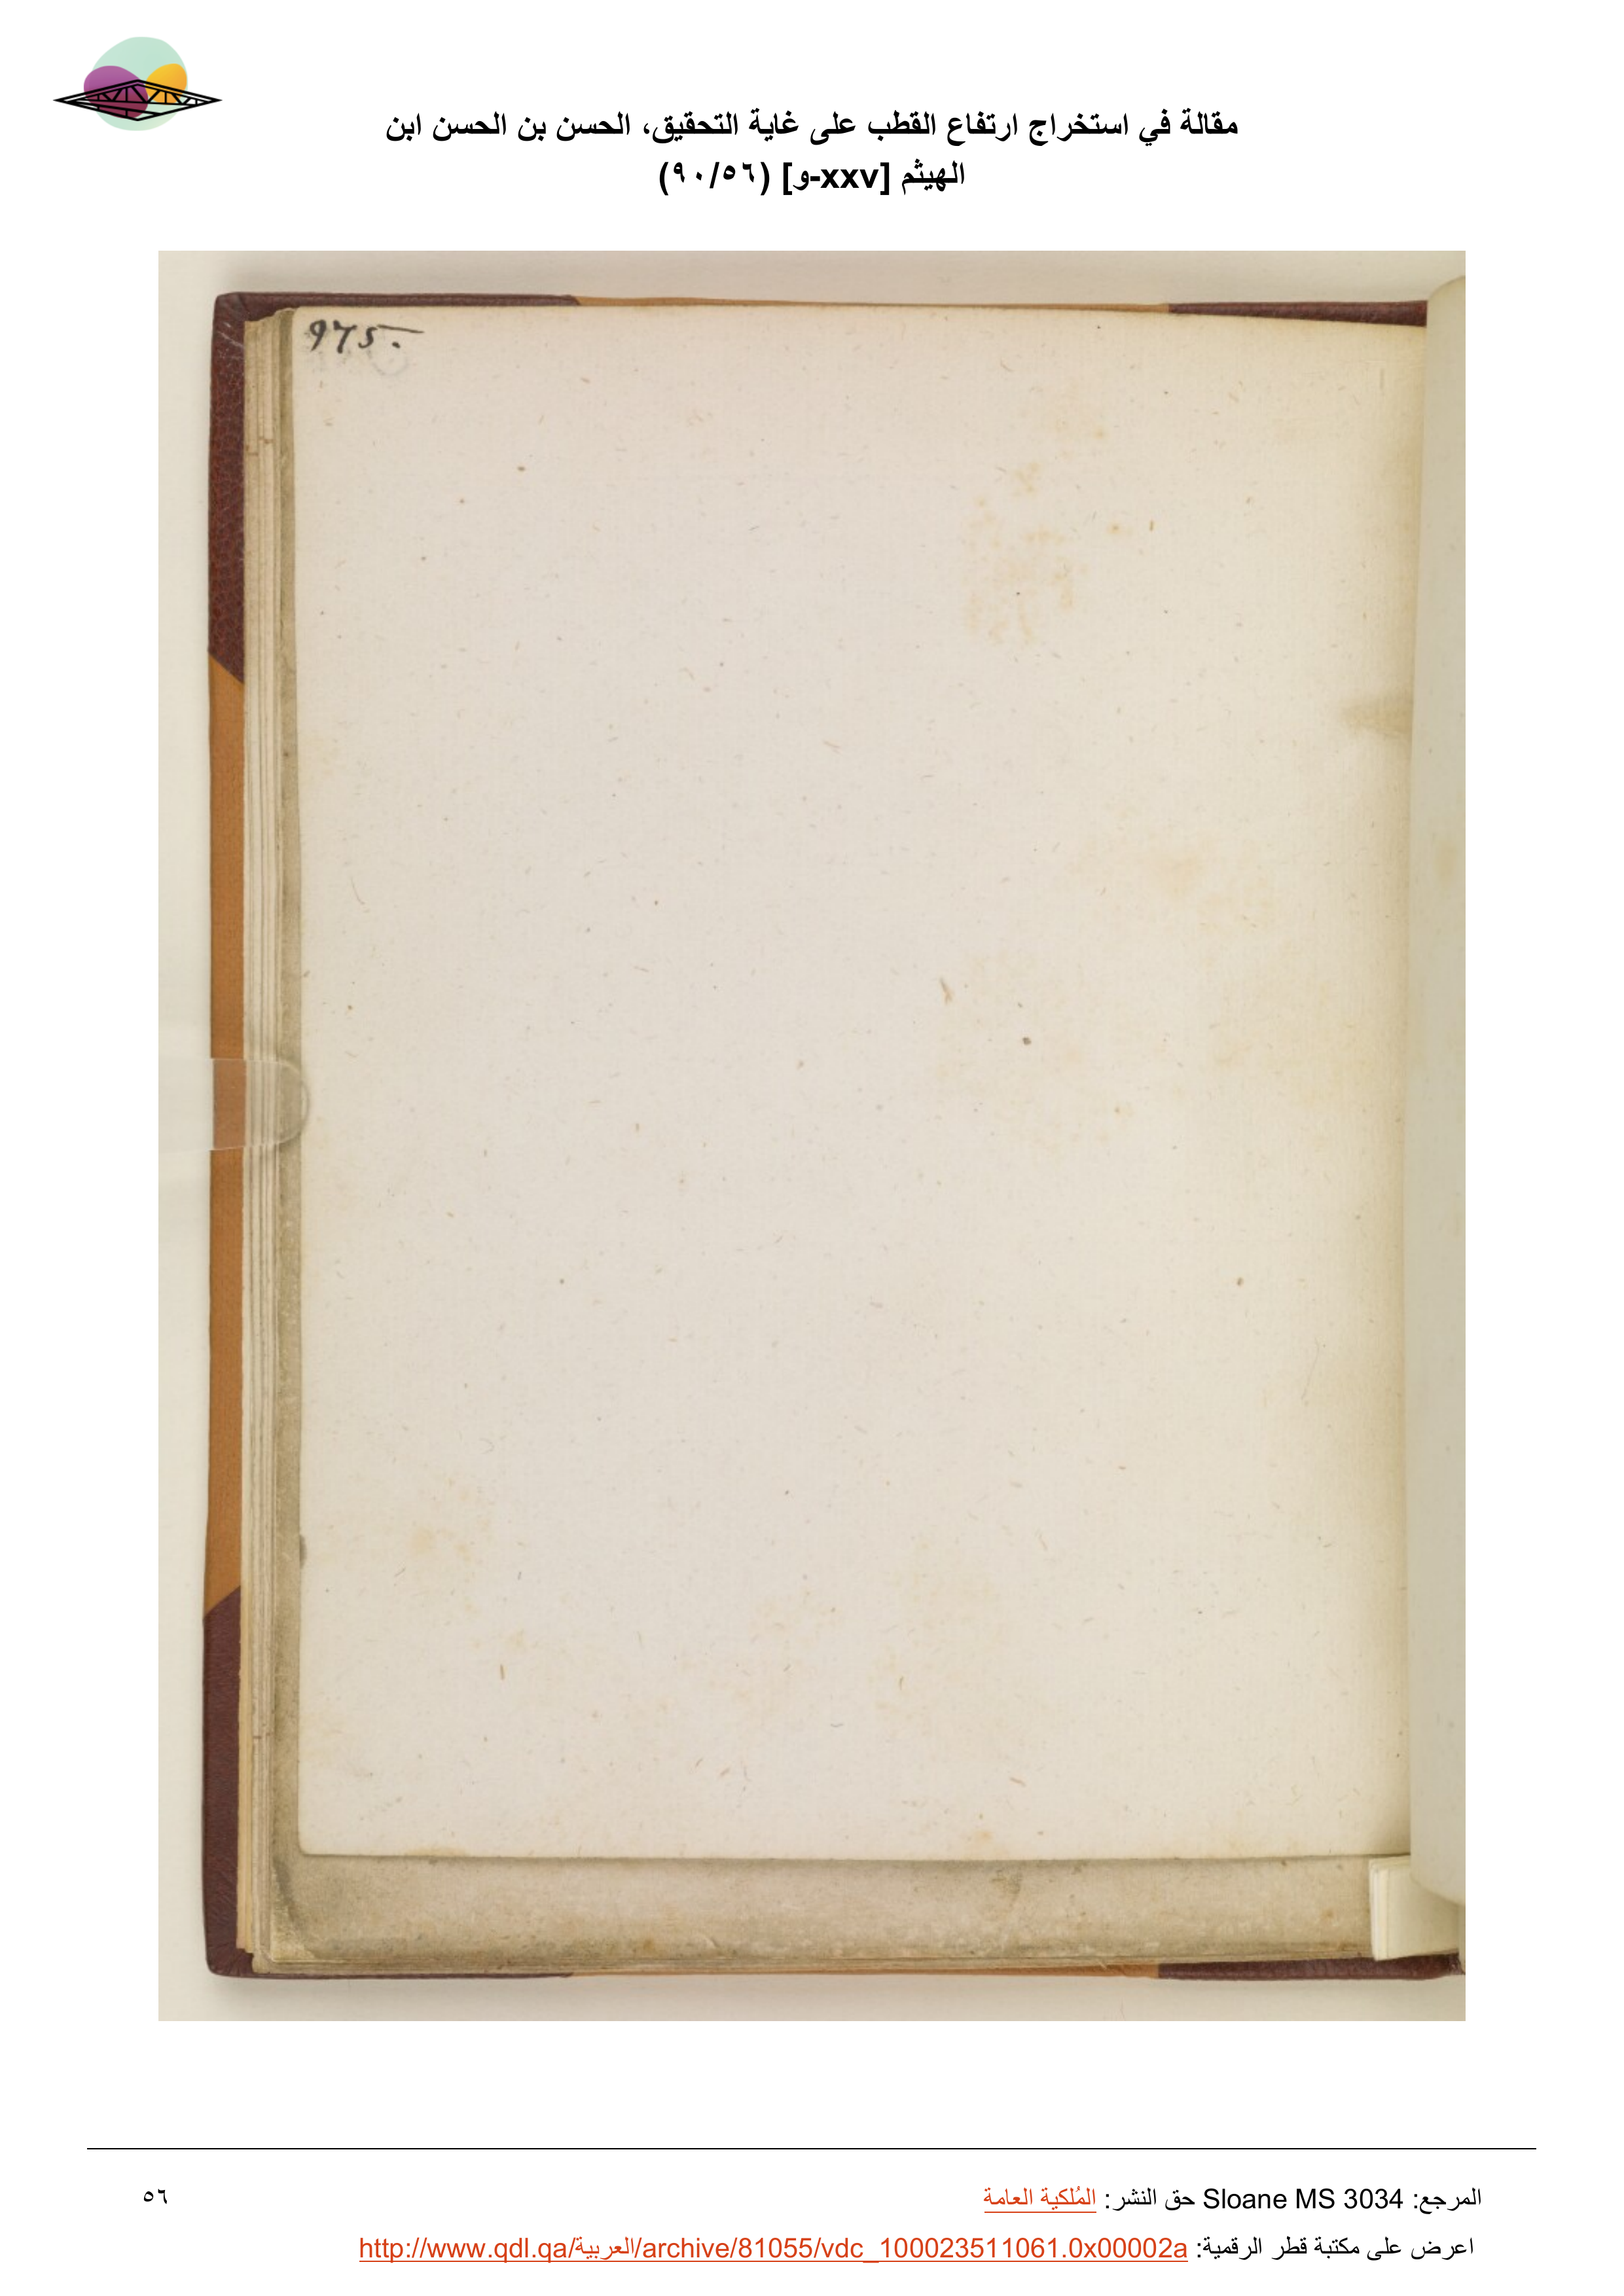 مقالة في استخراج ارتفاع القطب على غاية التحقيق، الحسن بن الحسن ابن
الهيثم [xxv-و] (٩٠/٥٦)
975.
المرجع: Sloane MS 3034 حق النشر: المُلكية العامة
٥٦
اعرض على مكتبة قطر الرقمية: http://www.qdl.qa/العربية/archive/81055/vdc_100023511061.0x00002a